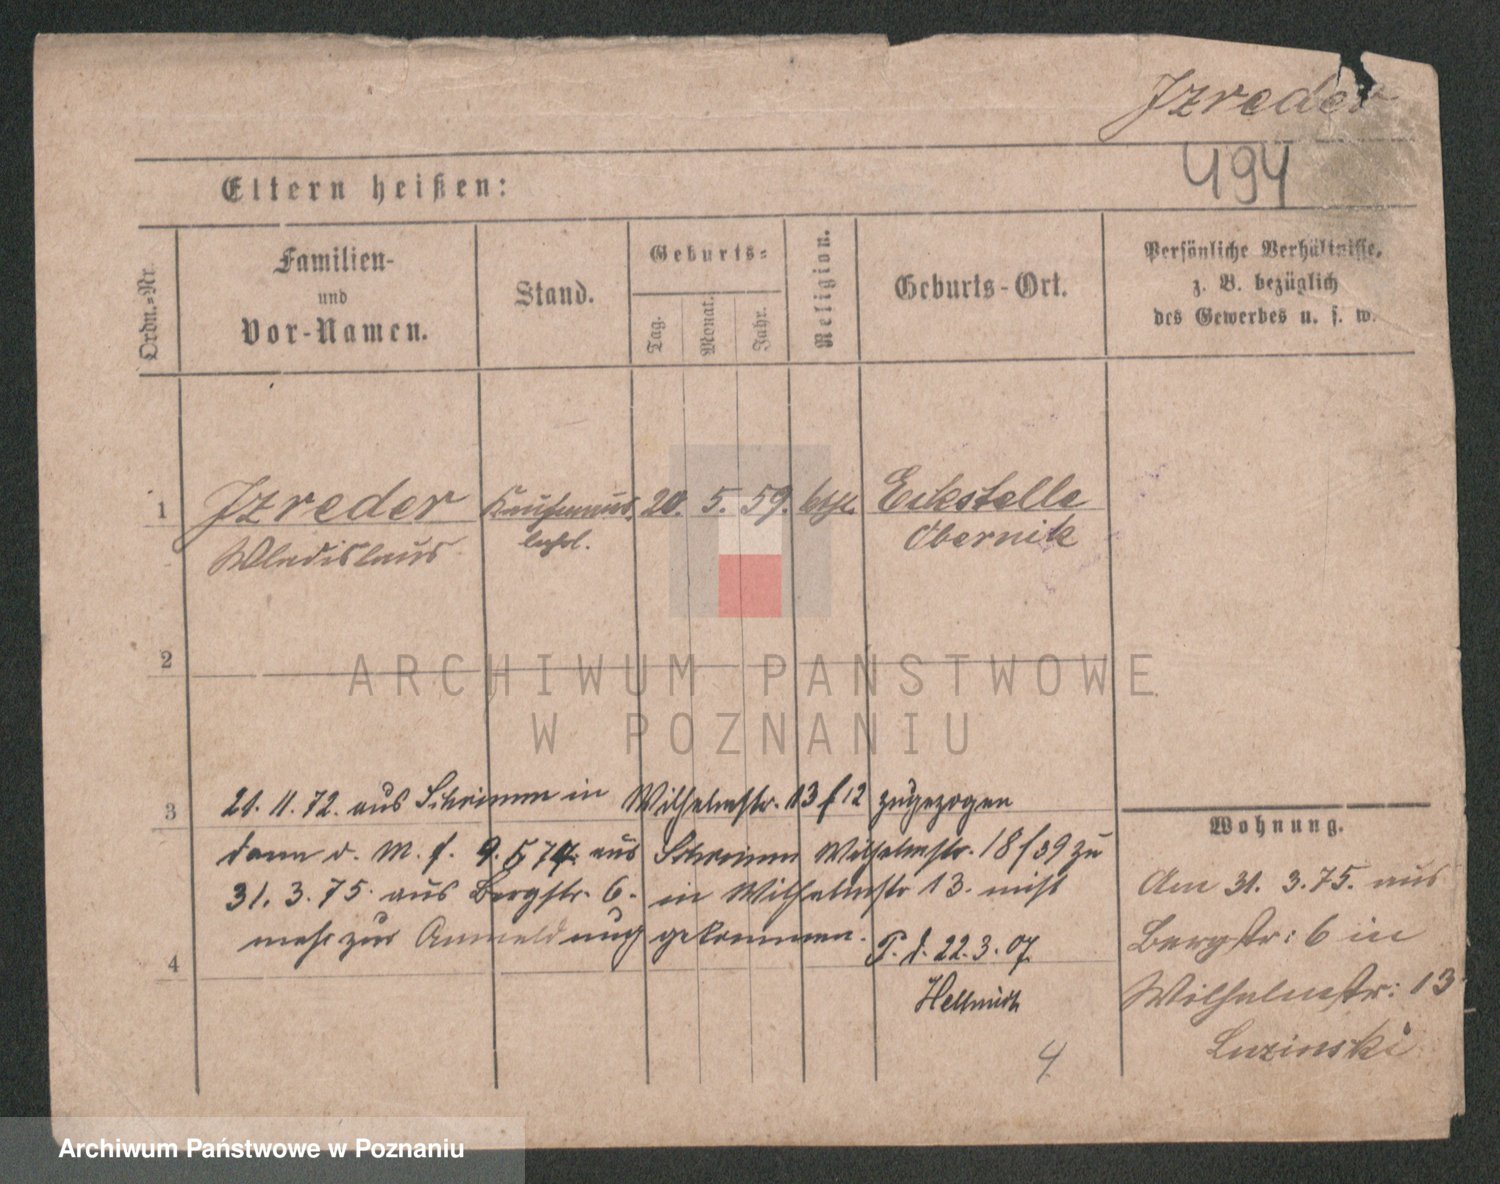 Jzreder
494
Eltern heißen:
Ordn.-Nr.
Familien-
und
Vor-Namen.
Stand.
Geburts-
Tag.
Monat.
Jahr.
Religion.
Geburts-Ort.
Persönliche Verhältnisse,
z. B. bezüglich
des Gewerbes u. s. w.
1 Jzreder Kaufmanns 20. 5. 59. kthl. Eckstelle
Wladislaus lehrl. Obernik
2
ARCHIWUM PAŃSTWOWE
W POZNANIU
3 21. 11. 72. aus Schrimm in Wilhelmstr. 13 f 12 zugezogen
dann d. M. f. 9. 5 74 aus Schrimm Wilhelmstr. 18 f 39 zu
31. 3. 75. aus Bergstr. 6. in Wilhelmstr 13. nicht
mehr zur Anmeldung gekommen.
4 P. d. 22. 3. 07.
4
Wohnung.
Am 31. 3. 75. aus
Bergstr: 6 in
Wilhelmstr: 13
Luzinski
Archiwum Państwowe w Poznaniu